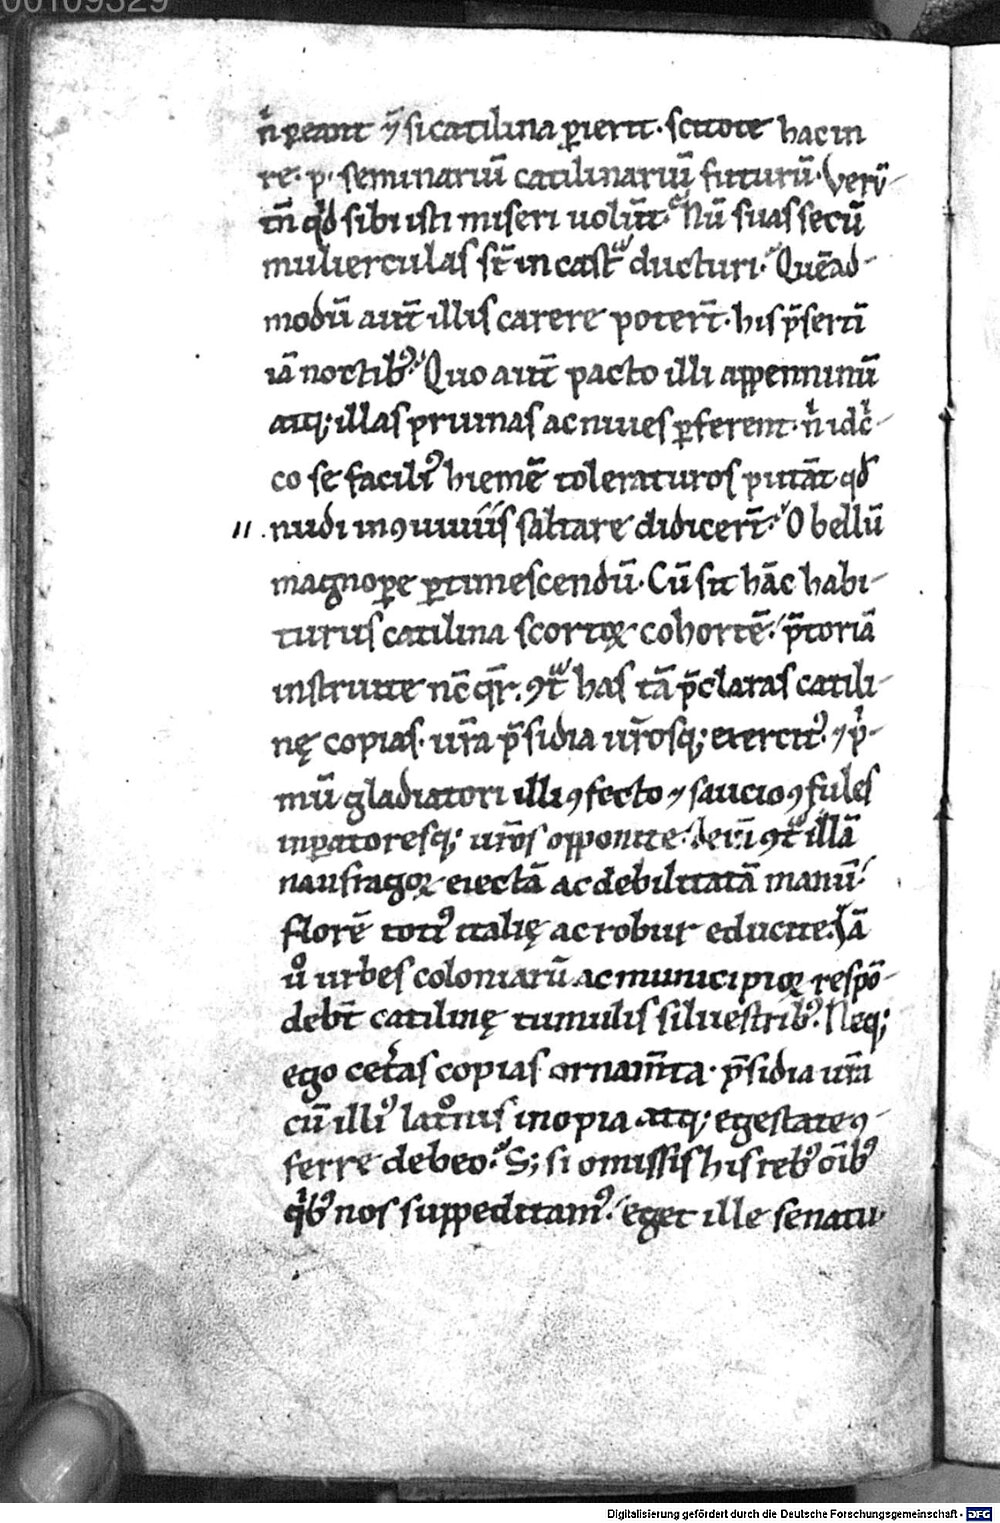 00109329
n̄ ꝑeant ⁊ si catilina ꝑierit · scitote hac in
re · p · seminariū catilinariū futurū · Verū-
tn̄ qd sibi isti miseri uolūt · Nū suas secū
mulierculas st̄ in castª ducturi · Quēad-
modū aut̄ illis carere potert̄ · his p̄sertī
iā noctibꝰ · Quo aut̄ pacto illi appenninū
atq; illas pruinas ac niues ꝑferent · n̄ idc̄-
co se faciliꝰ hiemē toleraturos putāt qd
nudi in ꝯuiuiis saltare didicert̄ · O bellū
magnoꝑe ꝑtimescendū · Cū sit hāc habi-
turus catilina scortoꝝ cohortē · p̄toriā
instruite nc̄ qr̄ · ꝯtª has tā p̄claras catili-
nę copias · ur̄a p̄sidia ur̄osq; exercitꝰ · ⁊ pⁱ-
mū gladiatori illi ꝯfecto ⁊ saucio ꝯsules
inꝑatoresq; ur̄os opponite · deīn ꝯtª illā
naufragoꝝ eiectā ac debilitatā manū ·
florē totiꝰ italię ac robur educite · Iā
uº urbes coloniarū ac municipioꝝ respō-
debt̄ catilinę tumulis siluestribꝰ · Neq;
ego cet̄as copias ornam̄ta · p̄sidia ur̄a
cū illiꝰ latºnis inopia atq; egestate ꝯ-
ferre debeo · S; si omissis his rebꝰ oībꝰ
qⁱbꝰ nos suppeditamꝰ · eget ille senatu
Digitalisierung gefördert durch die Deutsche Forschungsgemeinschaft - DFG